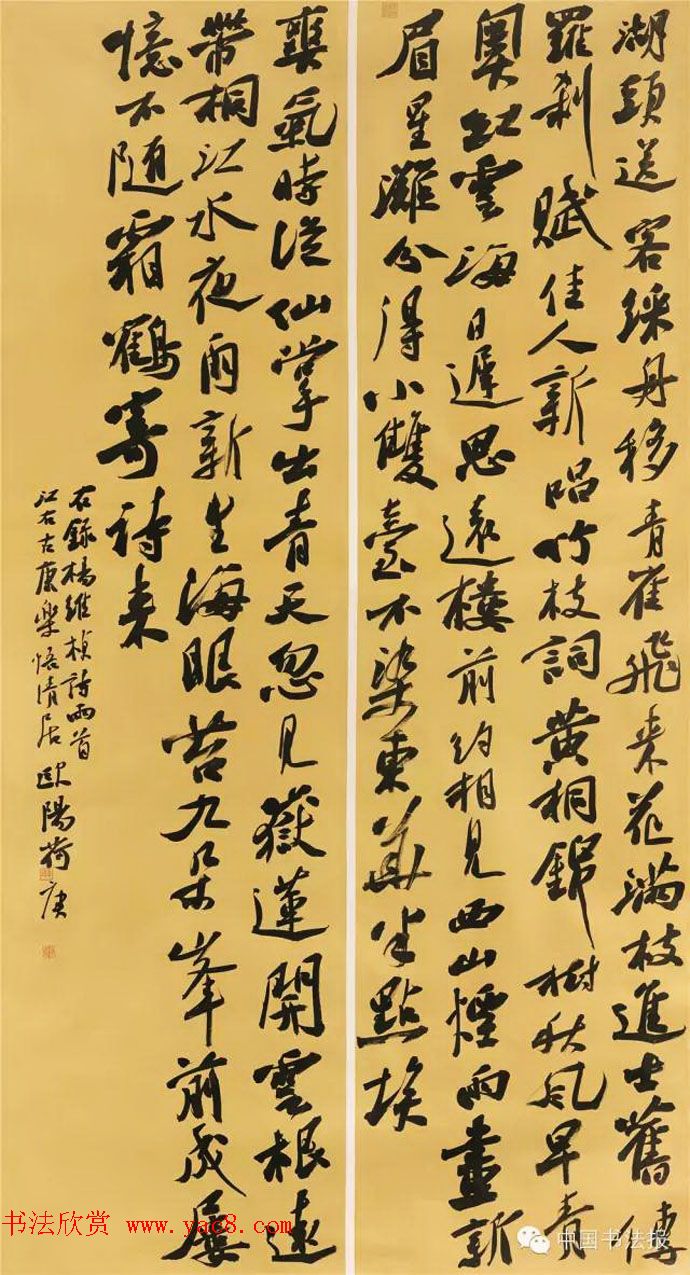 湖頭送客綵舟移青雀飛来花滿枝進士舊傳
羅刹賦佳人新唱竹枝詞黄桐錦樹秋風早貴
奥紅雲海日遲思遠樓前約相見西山煙雨畫新
眉星灘分得小雙臺不染東華半點埃
爽氣時從仙掌出青天忽見嶽蓮開雲根遠
帶桐江水夜雨新生海眼苔九朵峯前成屢
憶不随霜鶴寄詩来
右錄楊維楨詩兩首
江右古康樂悟清居歐陽荷庚
书法欣赏 www.yac8.com
中国书法报